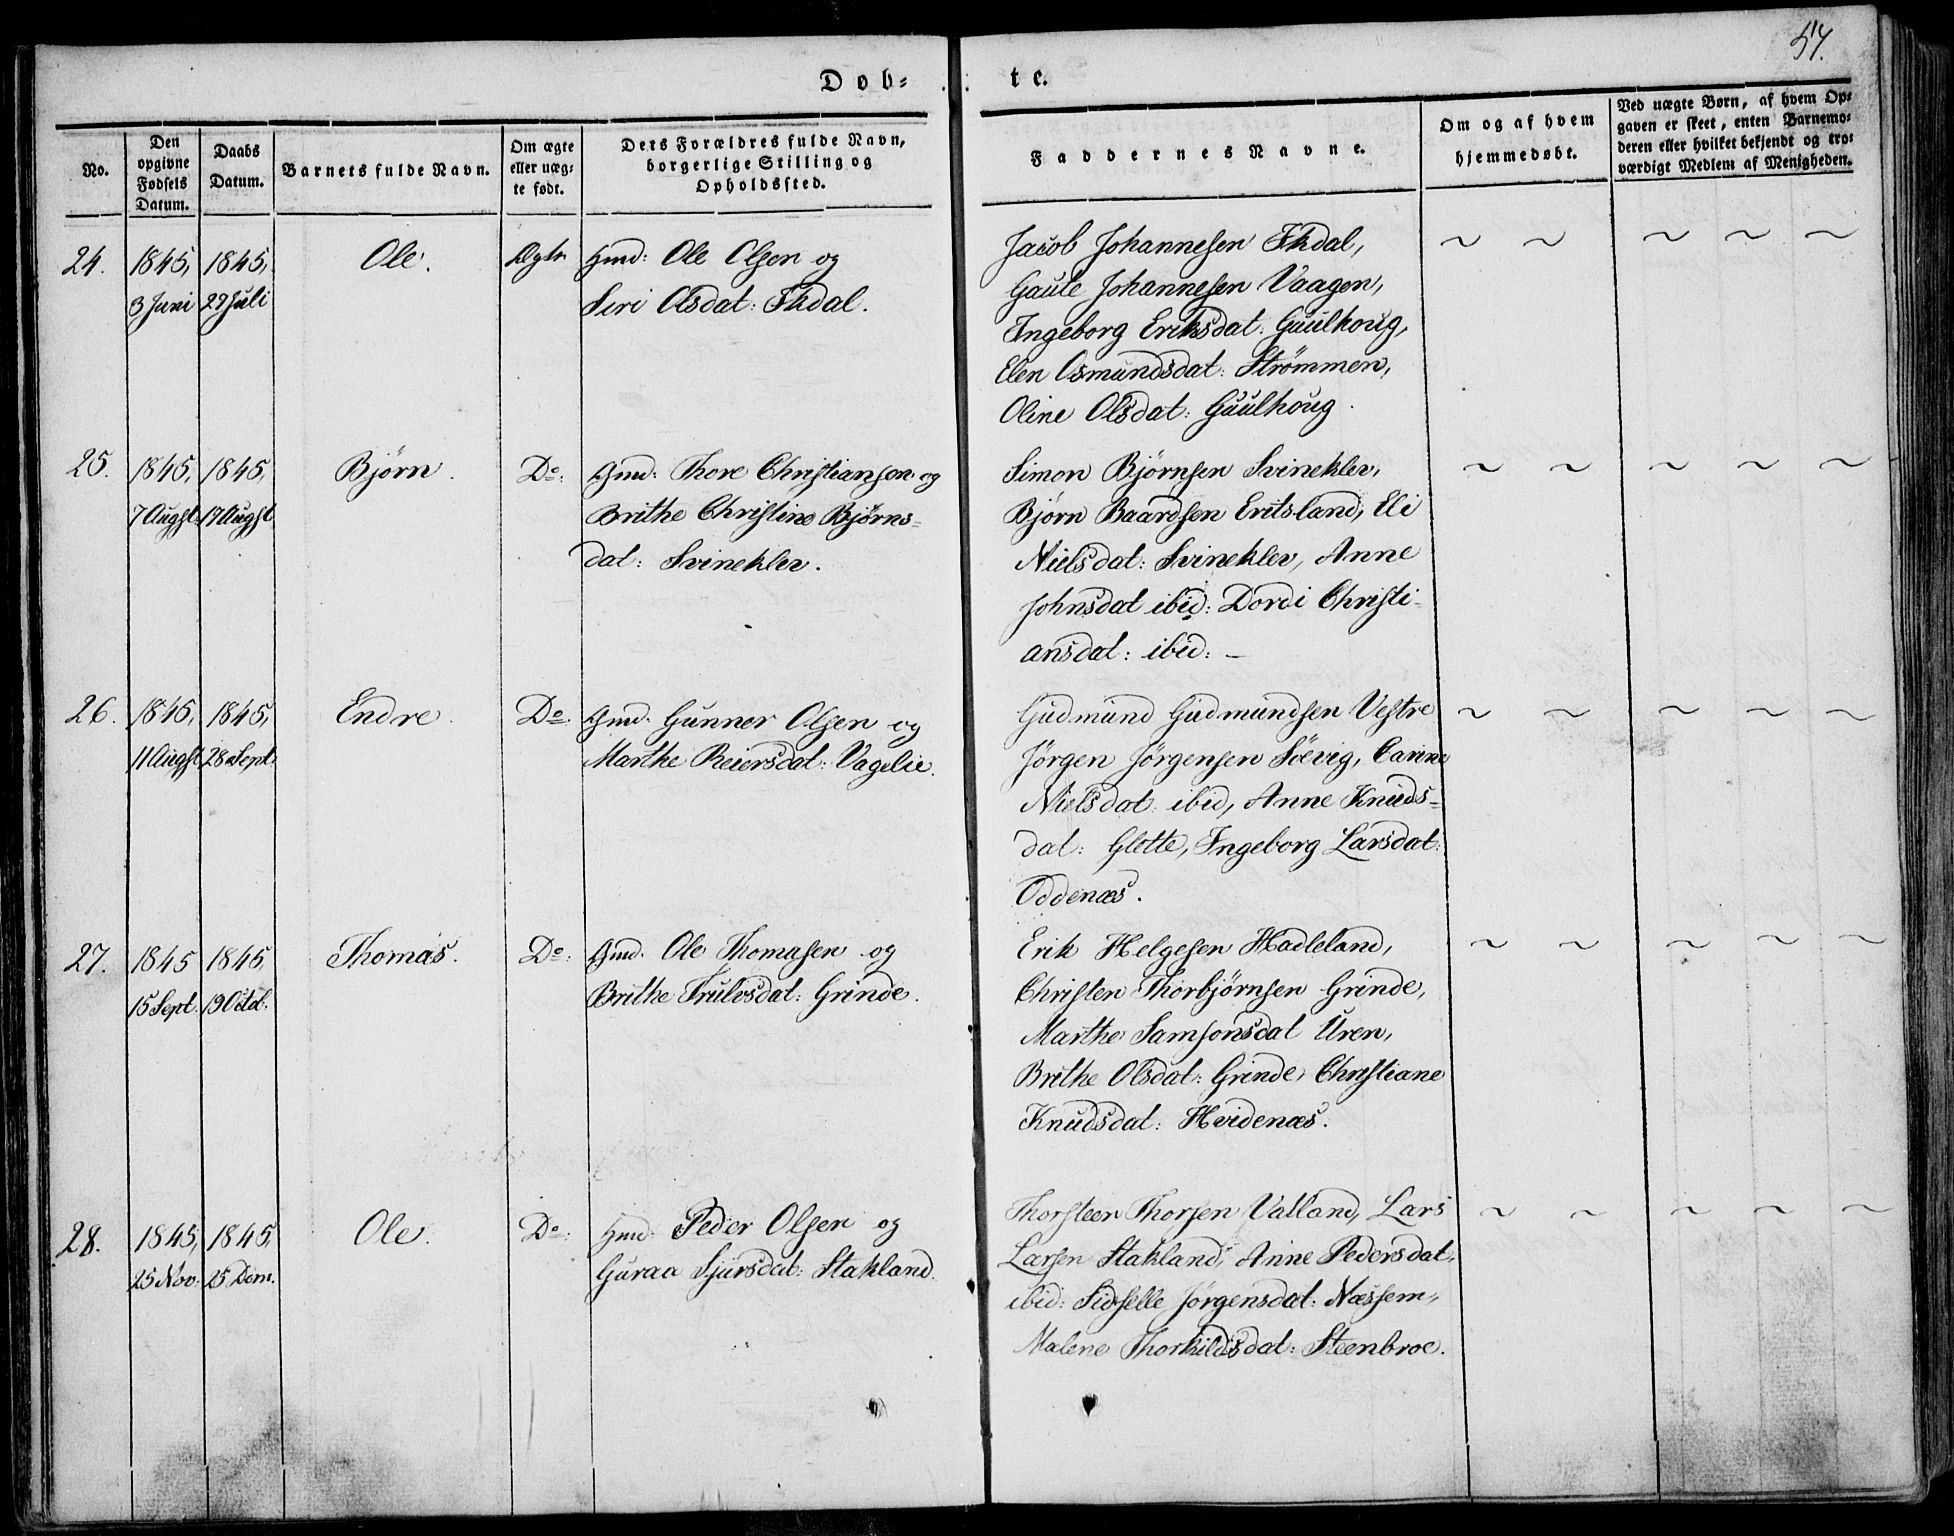 57.
Døb-
te.
No.
Den opgivne Fødsels Datum.
Daabs Datum.
Barnets fulde Navn.
Om ægte eller uæg-te født.
Dets Forældres fulde Navn, borgerlige Stilling og Opholdssted.
Faddernes Navne.
Om og af hvem hjemmedøbt.
Ved uægte Børn, af hvem Op-gaven er skeet, enten Barnemo-deren eller hvilket bekjendt og tro-værdigt Medlem af Menigheden.
24. 1845, 1845, Ole. Ægte Hmd: Ole Olsen og
3 Juni 29 Juli Siri Olsdat: Ekdal.
Jacob Johannesen Ekdal,
Gaute Johannesen Vaagen,
Ingeborg Eriksdat: Guulhoug,
Elen Osmundsdat: Strømmen,
Oline Olsdat: Guulhoug.
25. 1845, 1845, Bjørn. Do: Hmd: Thore Christiansen og
7 Augst 17 Augst Brithe Christine Bjørns-
dat: Svinekler.
Simon Bjørnsen Svinekler,
Bjørn Baardsen Eritsland, Eli
Nielsdat: Svinekler, Anne
Johnsdat ibid: Dordi Christi-
ansdat: ibid: –
26. 1845, 1845, Endre. Do. Hmd. Gunner Olsen og
11 Augst 28 Sept. Marthe Reiersdat: Vagelie.
Gudmund Gudmundsen Vestre
Jørgen Jørgensen Søevig, Carine
Nielsdat: ibid, Anne Knuds-
dat: Glette, Ingeborg Larsdat:
Oddenæs.
27. 1845 1845, Thomas. Do: Hmd. Ole Thomasen og
15 Sept. 19 Octob. Brithe Trulsdat: Grinde.
Erik Helgesen Hadleland,
Christen Thorbjørnsen Grinde,
Marthe Samsonsdat Uren,
Brithe Olsdat: Grinde, Christiane
Knudsdat: Hvidenæs.
28. 1845, 1845, Ole. Do: Hmd: Peder Olsen og
25 Nov. 25 Decm. Guraa Sjursdat: Stakland.
Thorsteen Thorsen Valland, Lars
Larsen Stakland, Anne Pedersdat,
ibid: Sidselle Jørgensdat: Næssem,
Malene Thorkildsdat: Steenbroe.